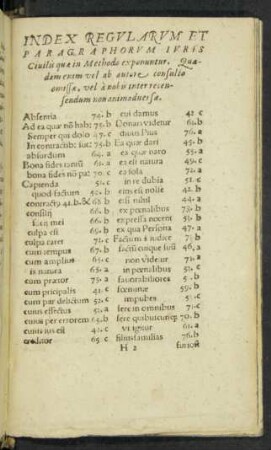 INDEX REGVLARVM ET
PARAGRAPHORVM IVRIS
Ciuilis quæ in Methodo exponuntur. Quæ-
dam enim vel ab autore consulto
omissa, vel à nobis inter recen-
sendum non animaduersa.
Absentia 74. b
Ad ea quæ nō hab: 75. b
Semper qui dolo 47. c
In contractib: suc:
absurdum 64. a
Bona fides tanti 61. a
bona fides nō pa: 70. c
Capienda 51. c
quod factum 50. c
contractꝰ 41. b. & 68 b
consilij 66. b
is q̃ mei 66. b
culpa est 69. b
culpa caret 71. c
cum tempus 67. b
cum amplius 61. c
is natura 65. a
cum prætor 79. a
cum pricipalis 41. c
cum par delictum 51. c
cuius effectus 51. a
cuius per errorem 44. b
cuius ius est 41. c
creditor 65. c
cui damus 42 c
Domari videtur 61. b
duum Piua 76. a
Ea quæ dari 45. b
ea quæ raro 55. a
ex est natura 49. c
ea sola 72. a
in re dubia 51. c
eius est nolle 42. b
est nihil 44. a
ex pœnalibus 73. b
expressa nocent 51. b
ex qua Persona 47. a
Factum à iudice 73. b
facisi cuique suū 46. a
non videtur 71. a
in pœnalibus 51. c
fauorabiliores 5. b
fœminæ 59. b
impubes 51. c
fere in omnibus 71. c
fere quibuscunqꝫ 70. b
vi igitur 61. a
filiusfamilias 76. b
H 2 furiosi